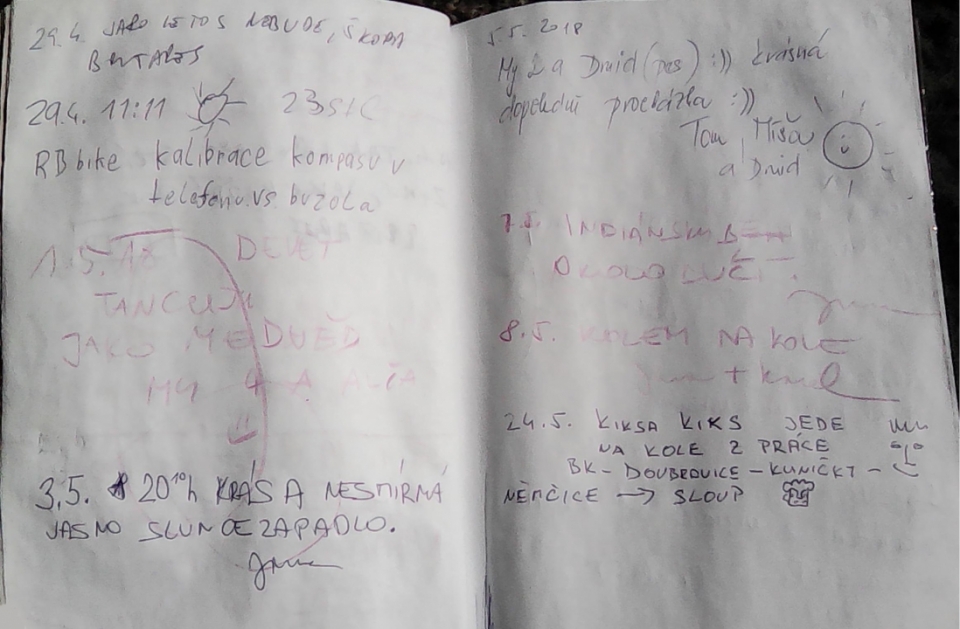 29.4. JARO LETOS NEBUDE, ŠKODA
29.4. 11:11 23
RB bike kalibrace kompasu v
telefonu vs. buzola
1.5.18 DEVĚT
TANCUJU
JAKO MEDVĚD
MY 4 A
3.5. 20 h KRÁSA NESMÍRNÁ
JASNO SLUNCE ZAPADLO.
5.5. 2018
My 2 a Druid (pes) :)) krásná
dopolední procházka :))
Tom, Míša
a Druid
7.5. INDIÁNSKÝ
OKOLO
8.5. KOLEM NA KOLE
24.5. KIKSA KIKS JEDE
NA KOLE Z PRÁCE
BK - DOUBRAVICE - KUNIČKY -
NĚMČICE → SLOUP